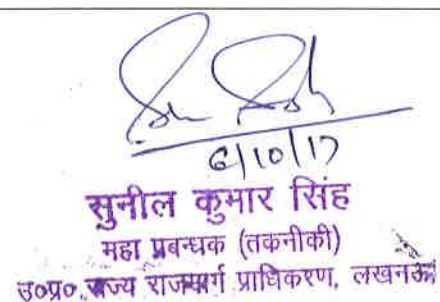 6/10/17
सुनील कुमार सिंह
महा प्रबन्धक (तकनीकी)
उ०प्र० राज्य राजमार्ग प्राधिकरण, लखनऊ